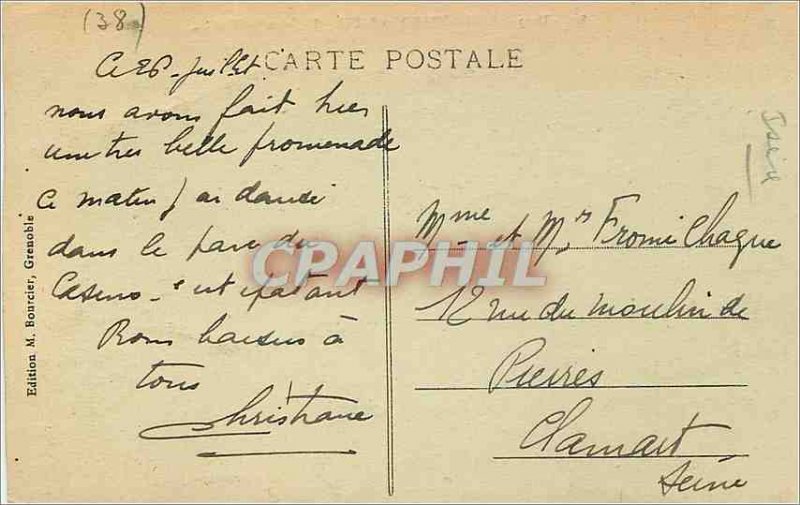 (38)
CARTE POSTALE
Ce 26 - Juillet
nous avons fait hier
une tres belle promenade
Ce matin j'ai dansé
dans le parc du
Casino - c'est épatant
Bons baisers à
tous
Christiane
Edition M. Bourcier, Grenoble
Isère
Mme et Mr Fromichague
12 rue du moulin de
Pierres
Clamart
Seine
CPAPHIL